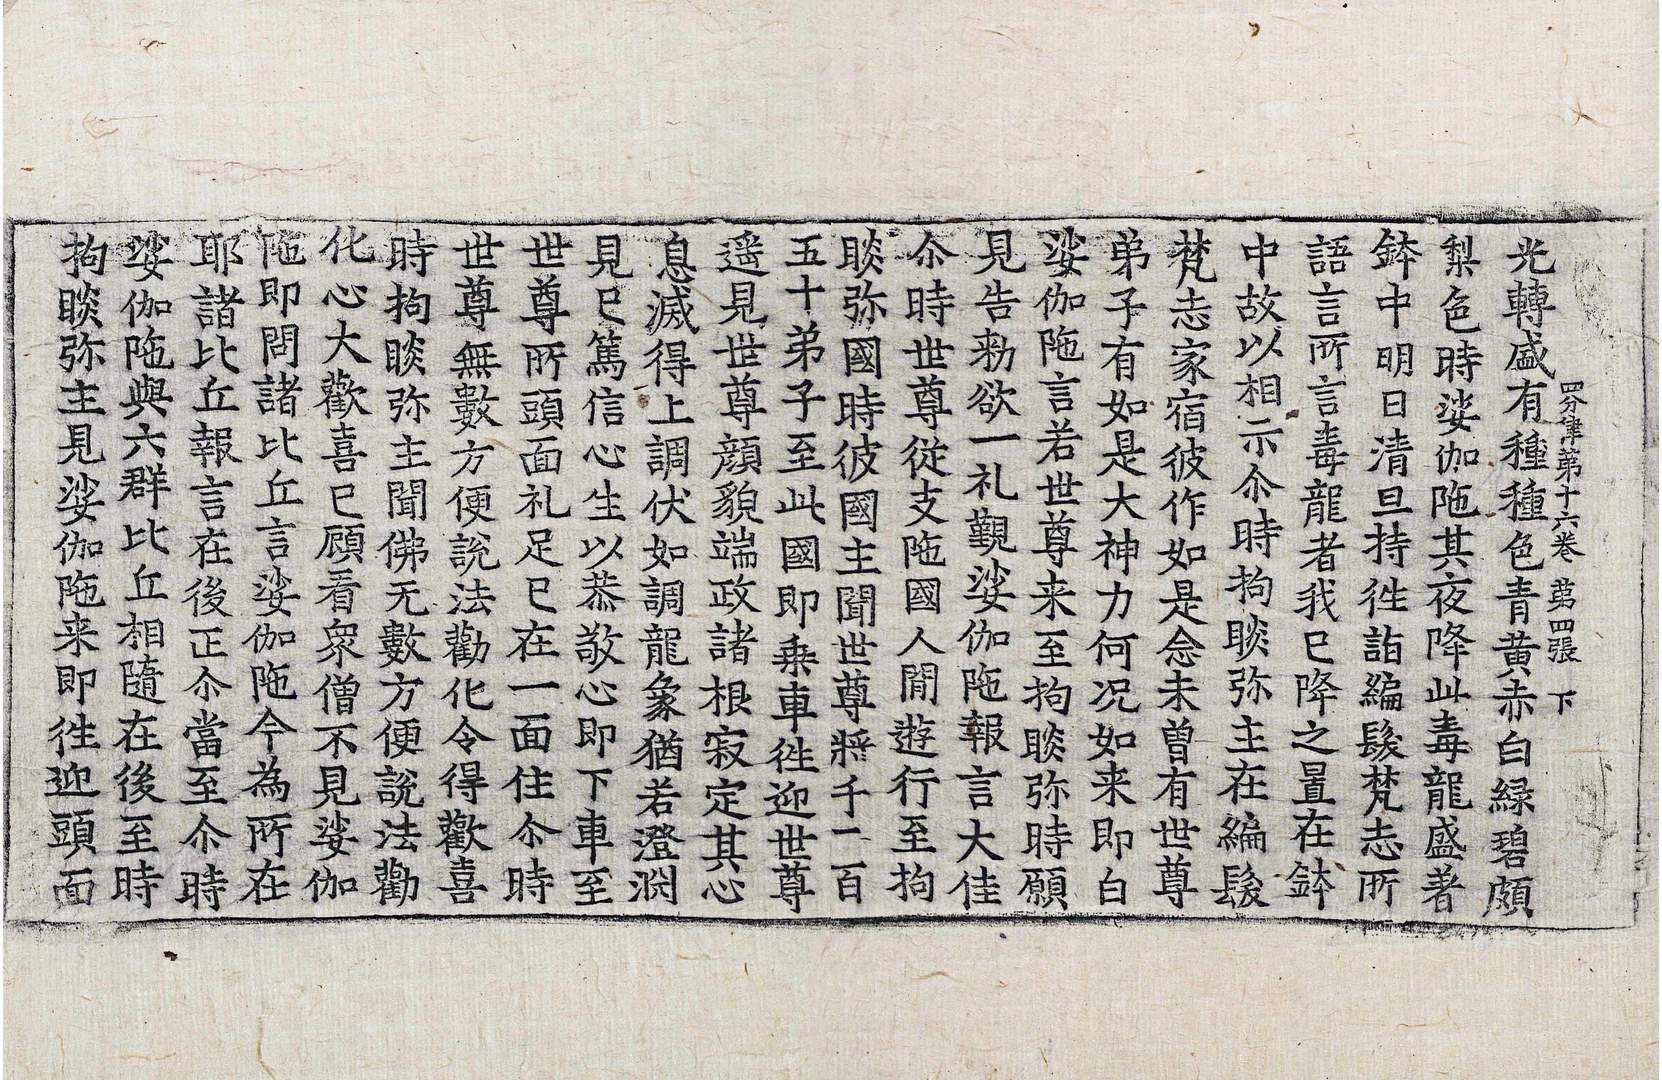 四分律第十六卷 第四張 下
光轉盛有種種色青黃赤白綠碧頗
梨色時娑伽陁其夜降此毒龍盛著
鉢中明日清旦持徃詣編髮梵志所
語言所言毒龍者我已降之置在鉢
中故以相示尒時拘睒弥主在編髮
梵志家宿彼作如是念未曾有世尊
弟子有如是大神力何况如来即白
娑伽陁言若世尊来至拘睒弥時願
見告勑欲一礼覲娑伽陁報言大佳
尒時世尊從支陁國人閒遊行至拘
睒弥國時彼國主聞世尊將千二百
五十弟子至此國即乗車徃迎世尊
遥見世尊顔貌端政諸根寂定其心
息滅得上調伏如調龍象猶若澄渕
見已篤信心生以恭敬心即下車至
世尊所頭面礼足已在一面住尒時
世尊無數方便說法勸化令得歡喜
時拘睒弥主聞佛无數方便說法勸
化心大歡喜已顧看衆僧不見娑伽
陁即問諸比丘言娑伽陁今為所在
耶諸比丘報言在後正尒當至尒時
娑伽陁與六群比丘相隨在後至時
拘睒弥主見娑伽陁来即徃迎頭面